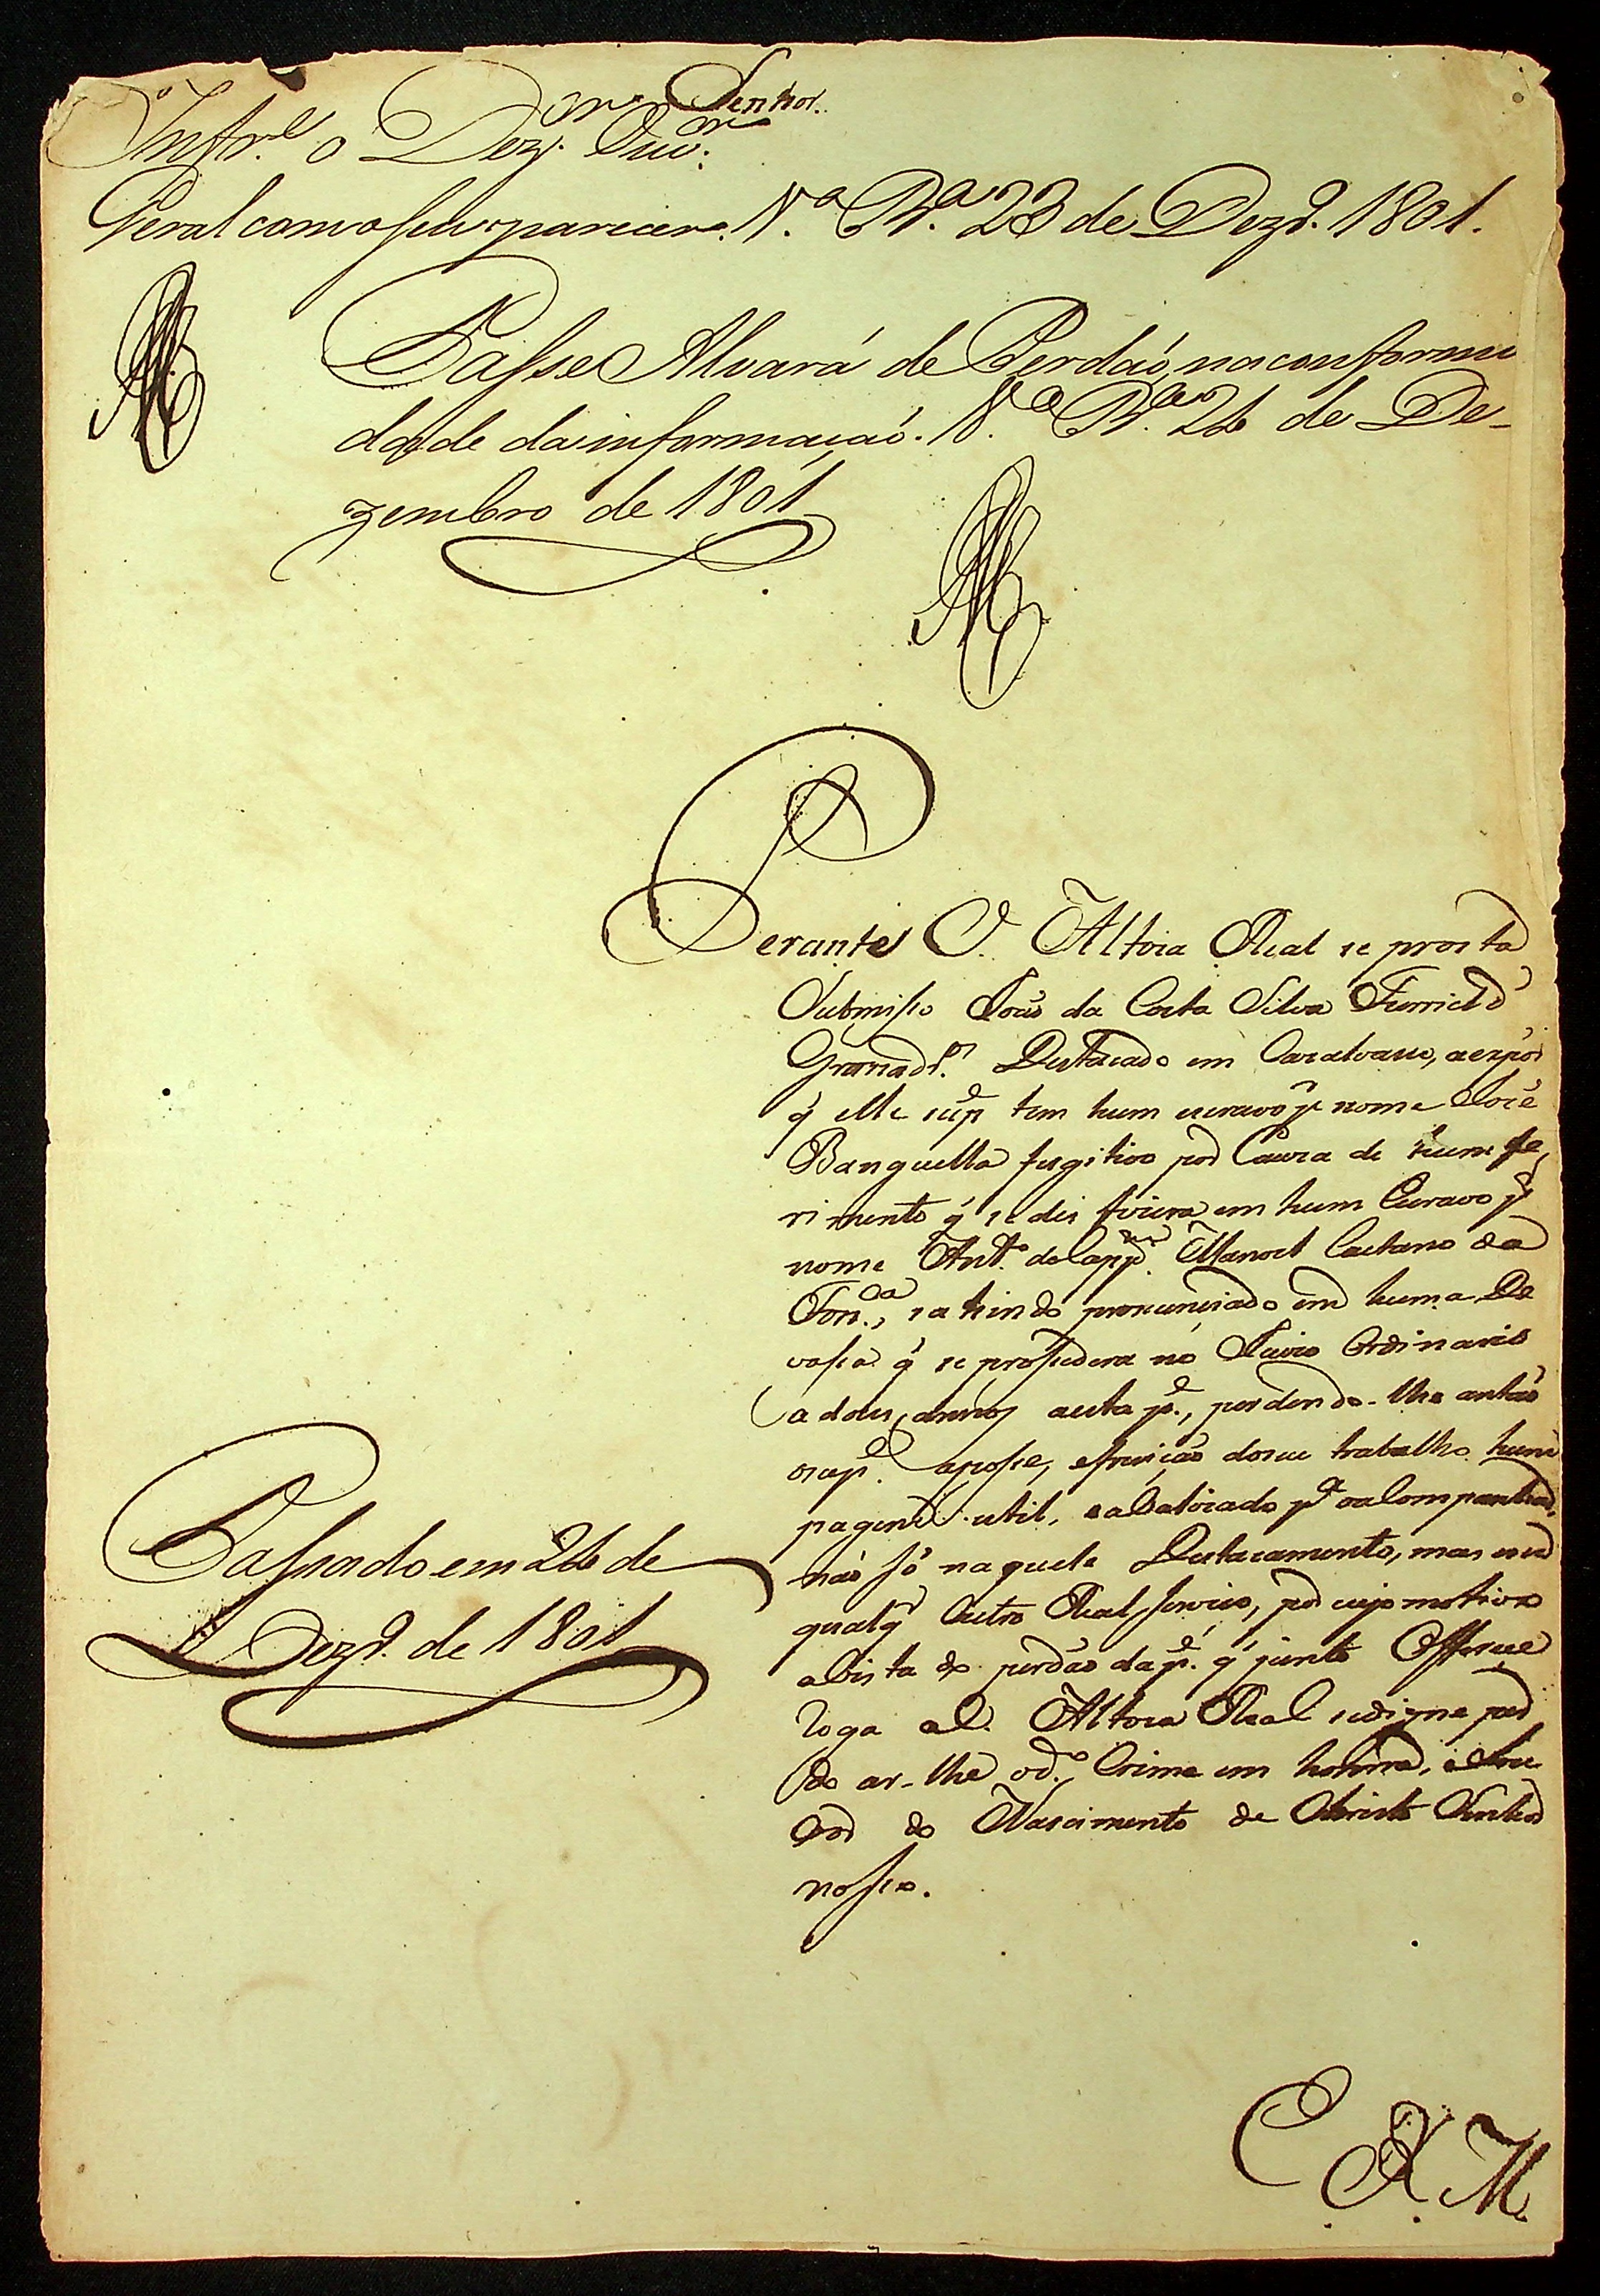 Senhor.
Infr.e o Dez.or Ouv.or
Geral com o seu parecer. V.a R.a 23 de Dezb.o 1801.
Passe Alvará de Perdaó, na conformi
dade da informaçaó. V.a R.a 24 de De-
zembro de 1801
Perante V. Alteza Real se prosta
Submisso Joaõ da Costa Silva Furriel d
Granadr.os Destacado em Casalvasco, a expor
q̃ elle sup.e tem hum escravo p.r nome Joze
Banguella fugitivo por Cauza de hum fe
rimento q̃ se dis fizera em hum Escravo p.r
nome Ant.o do Capp.am Manoel Caetano da
Fon.ca, sahindo pronunciado em huma De
vassa q̃ se prossedera no Juizo Ordinario
a dous annos a esta p.e, perdendo-lhe antaõ
o sup.e a posse, e fruiçaõ do seu trabalho hum
pagem util, e abalizado p.a o acompanhar,
naõ só naquele Destacamento, mas em
qualq.r Outro Real serviço, por cujo motivo
a vista do perdaõ da p.e q̃ junto Offerece
Roga a V. Alteza Real se digne per
doar-lhe o d.o Crime em honra, e Lou
vor do Nascimento de Christo Senhor
nosso.
Passado em 24 de
Dezb.o de 1801
E R M.